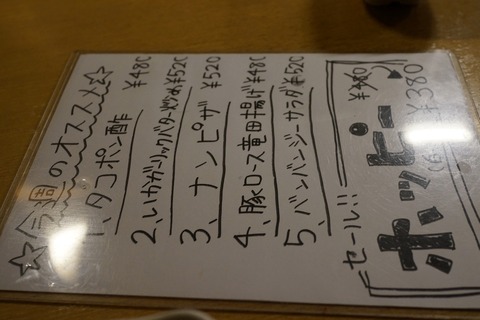 ☆今週のオススメ☆
1、タコポン酢 ¥480
2、いかガーリックバター炒め ¥520
3、ナンピザ ¥520
4、豚ロース竜田揚げ ¥480
5、バンバンジーサラダ ¥520
セール!!
ホッピー ¥480 ¥380